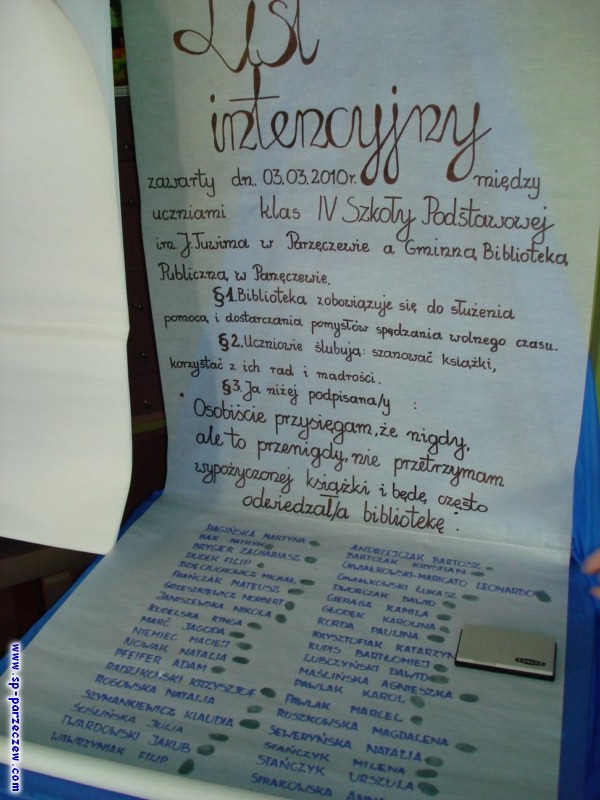 List
intencyjny
zawarty dn. 03.03.2010r. między
uczniami klas IV Szkoły Podstawowej
im. J. Tuwima w Parzęczewie a Gminną Biblioteką
Publiczną w Parzęczewie.
§1. Biblioteka zobowiązuje się do służenia
pomocą i dostarczania pomysłów spędzania wolnego czasu.
§2. Uczniowie ślubują: szanować książki,
korzystać z ich rad i mądrości.
§3. Ja niżej podpisana/y :
"Osobiście przysięgam, że nigdy,
ale to przenigdy, nie przetrzymam
wypożyczonej książki i będę często
odwiedzał/a bibliotekę".
BAGIŃSKA MARTYNA
BĄK PATRYK
BRYGIER ZACHARIASZ
DUDEK FILIP
MICHAŁ
FRAŃCZAK MATEUSZ
GRZESZKIEWICZ NORBERT
JANISZEWSKA NIKOLA
KUDELSKA KINGA
MARĆ JAGODA
NIEMIEC MACIEJ
NOWAK NATALIA
PFEIFER ADAM
RADZIKOWSKI KRZYSZTOF
ROGOWSKA NATALIA
SZYMANKIEWICZ KLAUDIA
ŚOŚLIŃSKA JULIA
TWARDOWSKI JAKUB
WAWRZYNIAK FILIP
ANDRZEJCZAK BARTOSZ
BARTCZAK KRYSTIAN
CHWIAŁKOWSKI-MARICATO LEONARDO
CHWIAŁKOWSKI ŁUKASZ
DWORCZAK DAWID
GIERAGA KAMILA
GŁODEK KAROLINA
KORDA PAULINA
KRYSZTOFIAK KATARZYN
KUPIS BARTŁOMIEJ
LUBCZYŃSKI DAWID
MAŚLIŃSKA AGNIESZKA
PAWLAK KAROL
PAWLAK MARCEL
RUSZKOWSKA MAGDALENA
SEWERYŃSKA NATALIA
STAŃCZYK MILENA
STAŃCZYK URSZULA
SPRAKOWSKA ANN
www.sp-parzeczew.com